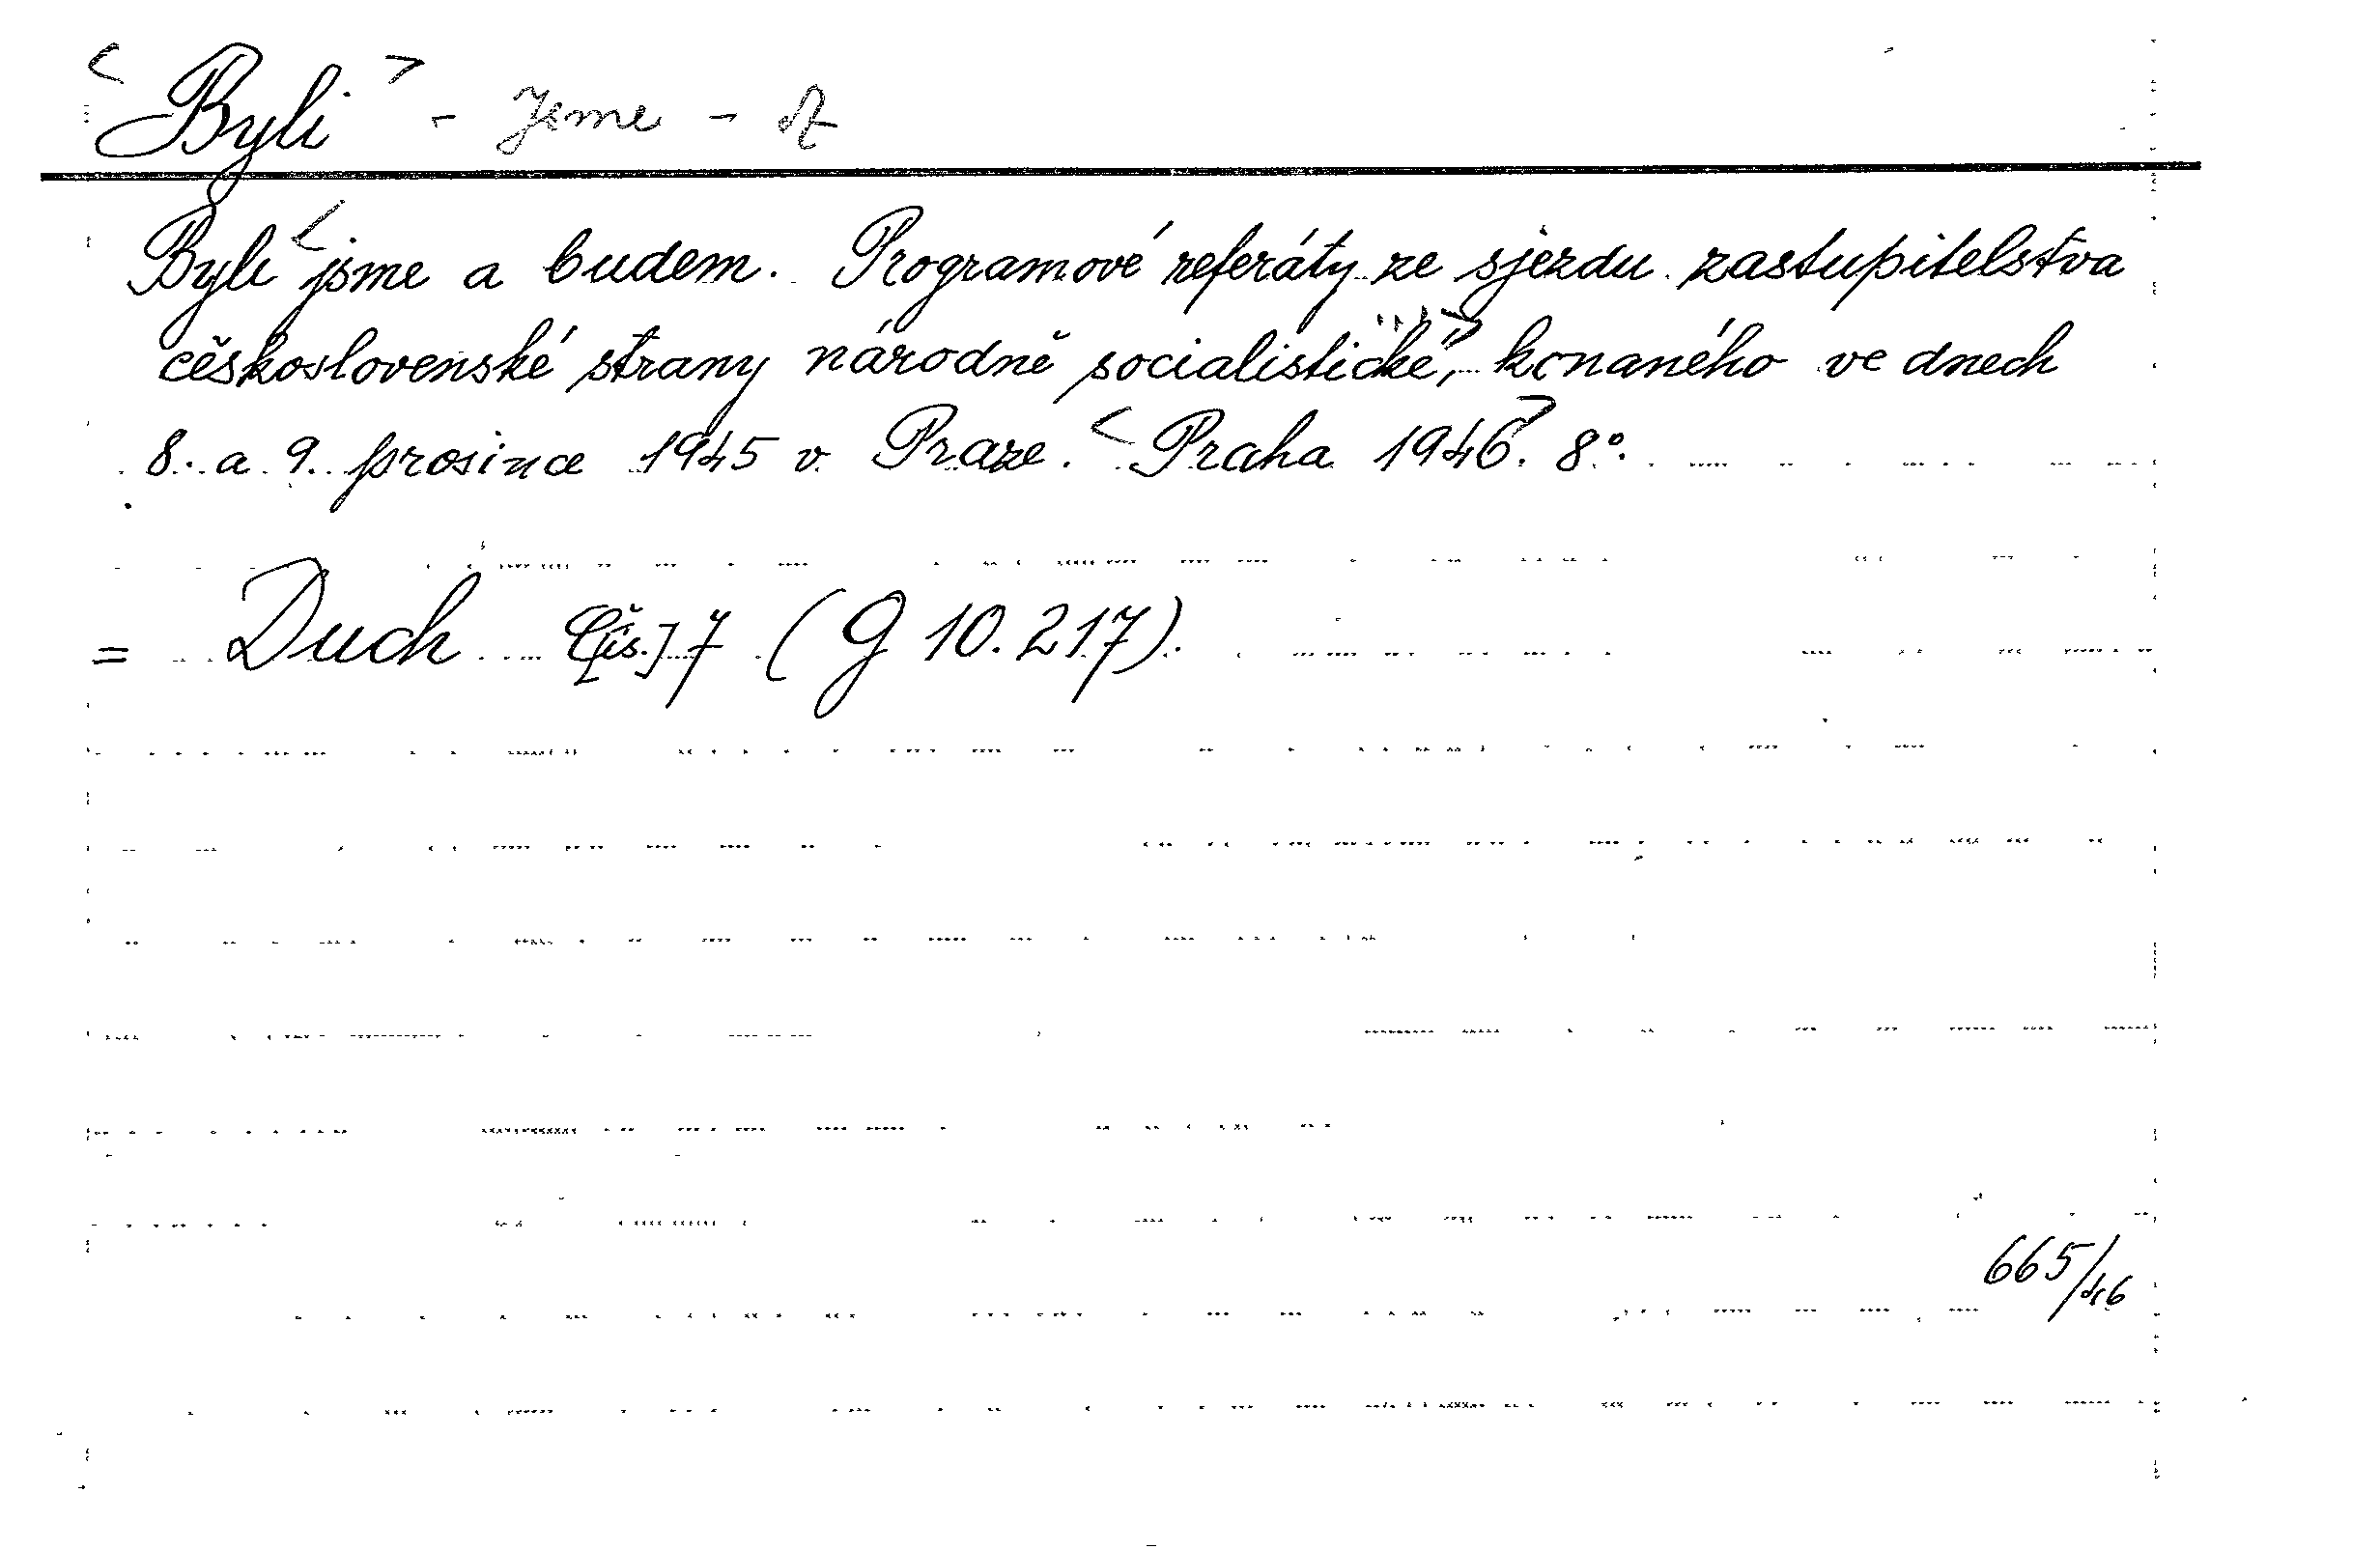 < Byli > - Jsme - A
Byli < jsme a budem. Programové referáty ze sjezdu zastupitelstva
československé strany národně socialistické, > konaného ve dnech
8. a 9. prosince 1945 v Praze. < Praha 1946 >. 8°.
= Duch Č[ís.] 7 (G 10.217).
665/46